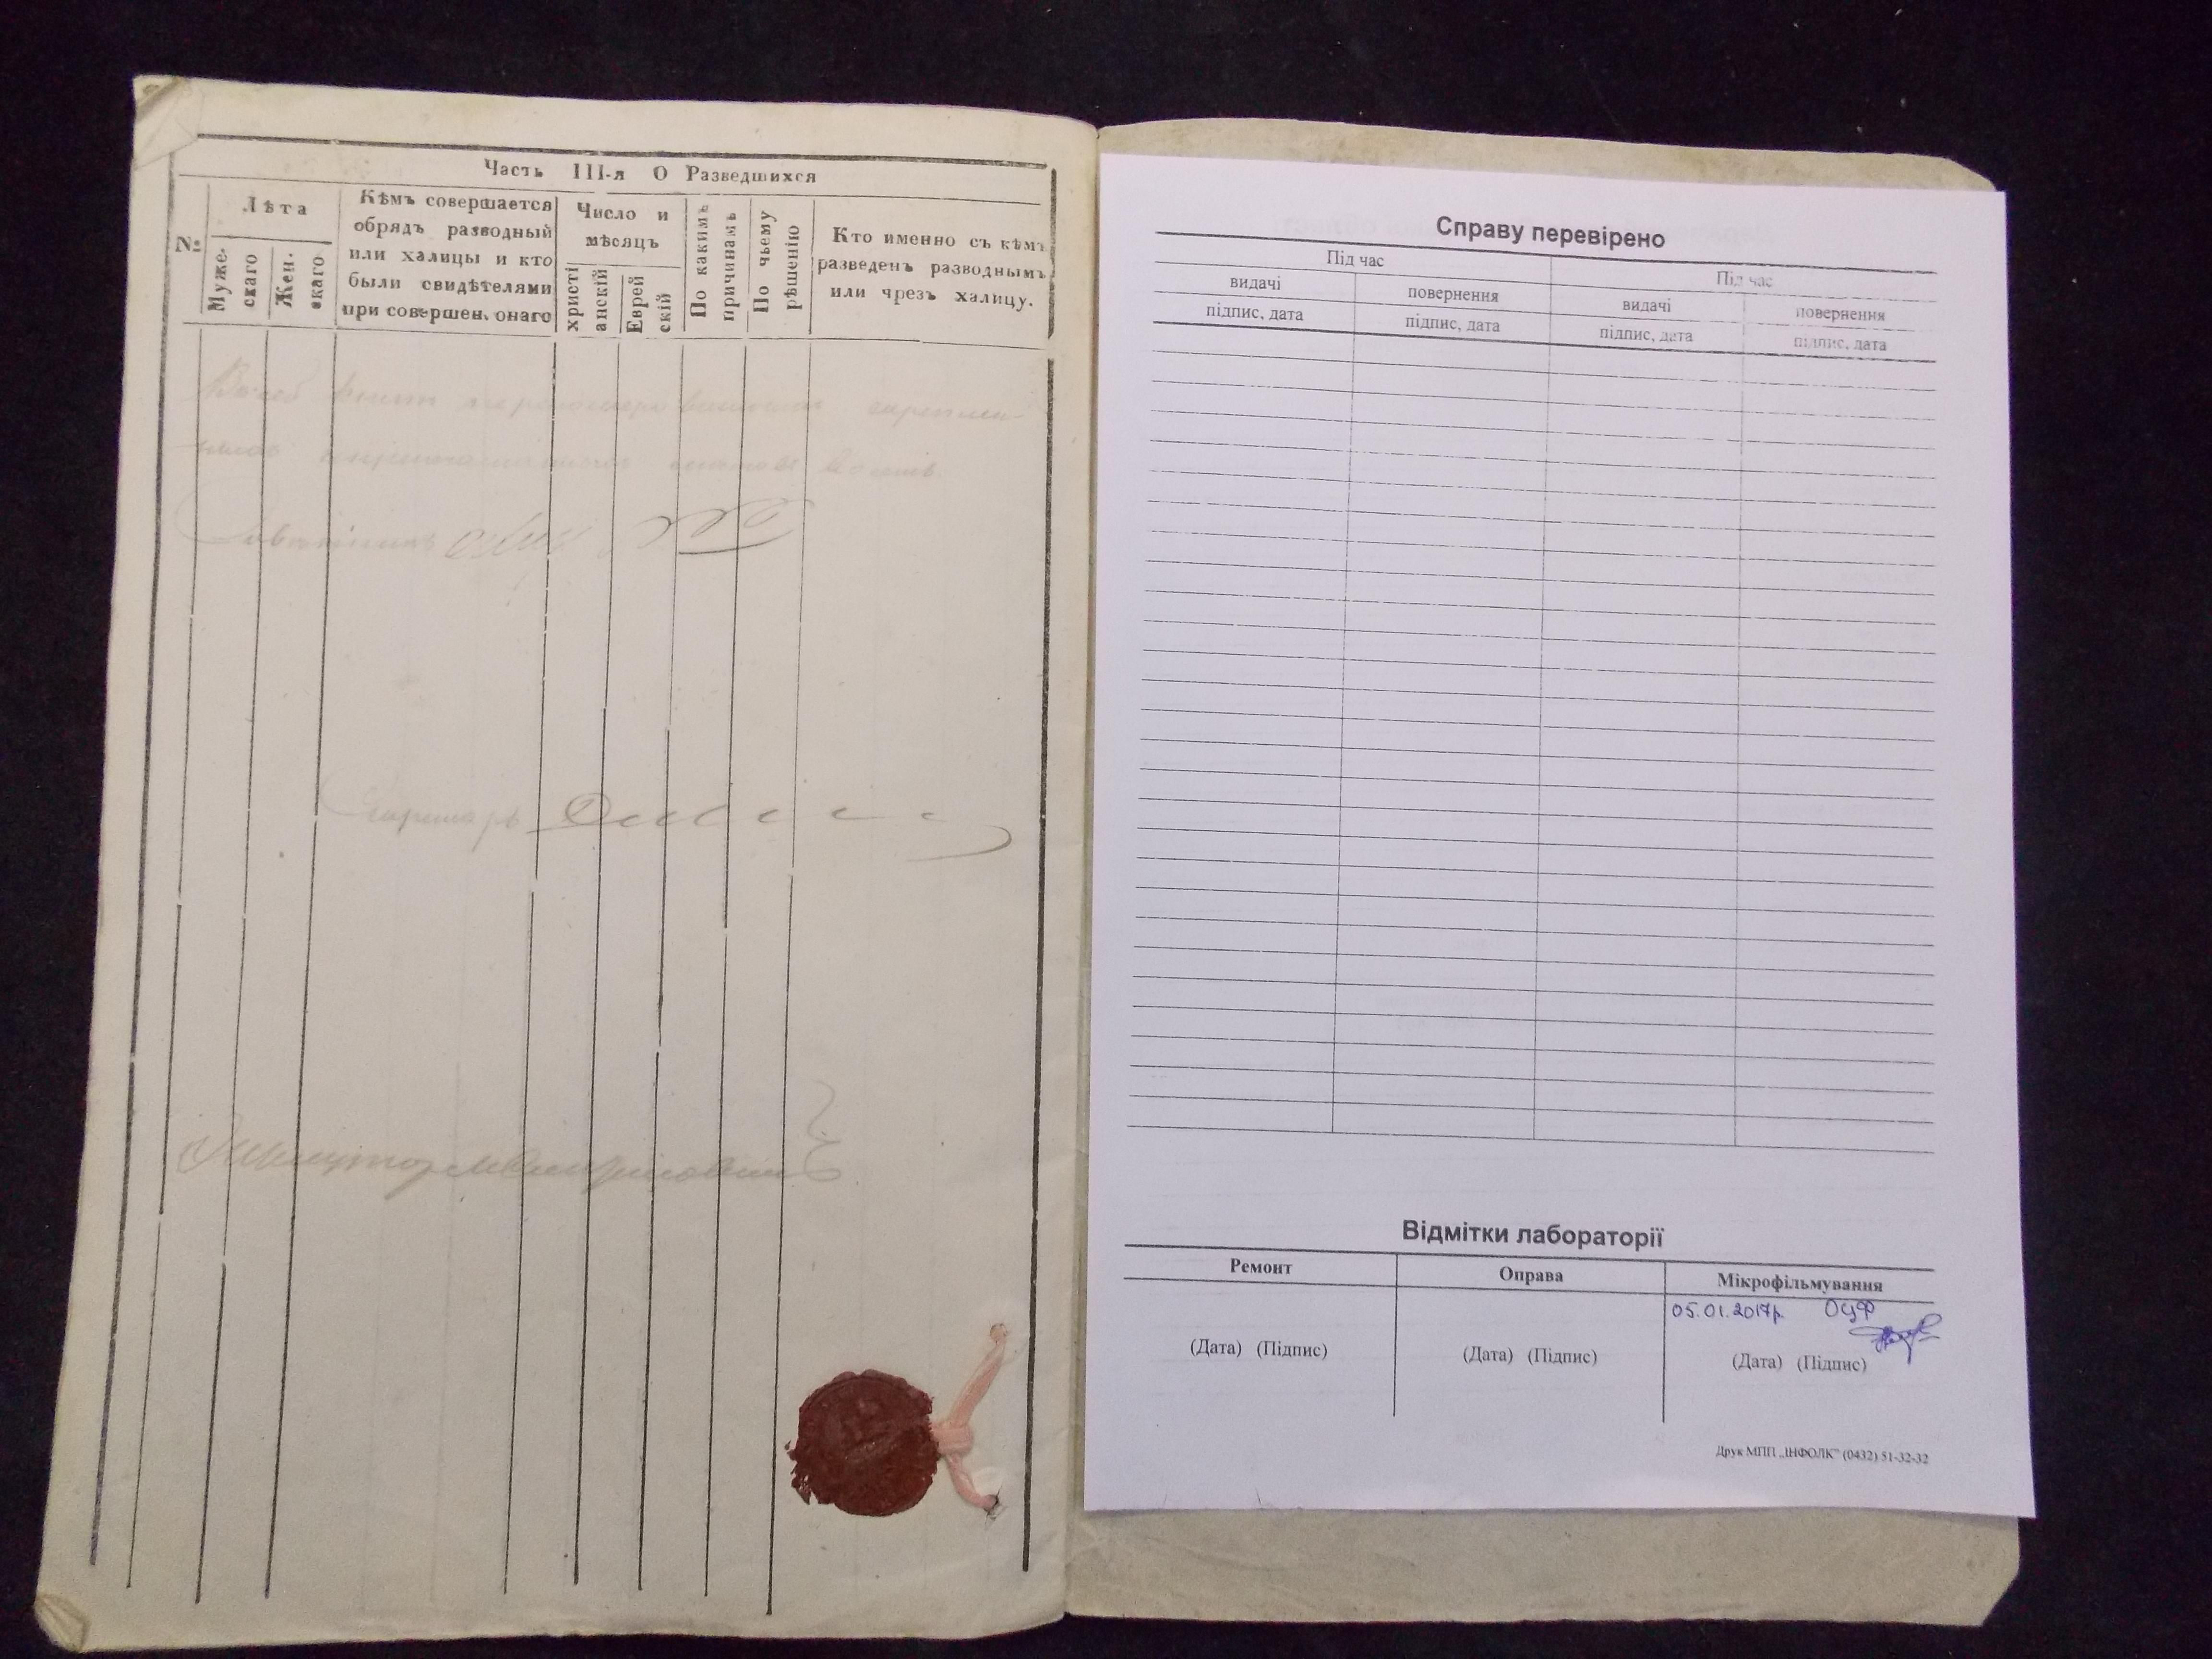 Часть III-я О Разведшихся
№
Лѣта
Муже-
скаго
Жен.
скаго
Кѣмъ совершается
обрядъ разводный
или халицы и кто
были свидѣтелями
при совершен. онаго
Число и
мѣсяцъ
христі
анскій
Еврей
скій
По какимъ
причинамъ
По чьему
рѣшенію
Кто именно съ кѣмъ
разведенъ разводнымъ
или чрезъ халицу.
Секретарь
Справу перевірено
Під час
Під час
видачі
повернення
видачі
повернення
підпис, дата
підпис, дата
підпис, дата
підпис, дата
Відмітки лабораторії
Ремонт
Оправа
Мікрофільмування
05.01.2017р. ОЦФ
(Дата) (Підпис)
(Дата) (Підпис)
(Дата) (Підпис)
Друк МПП „ІНФОЛК" (0432) 51-32-32